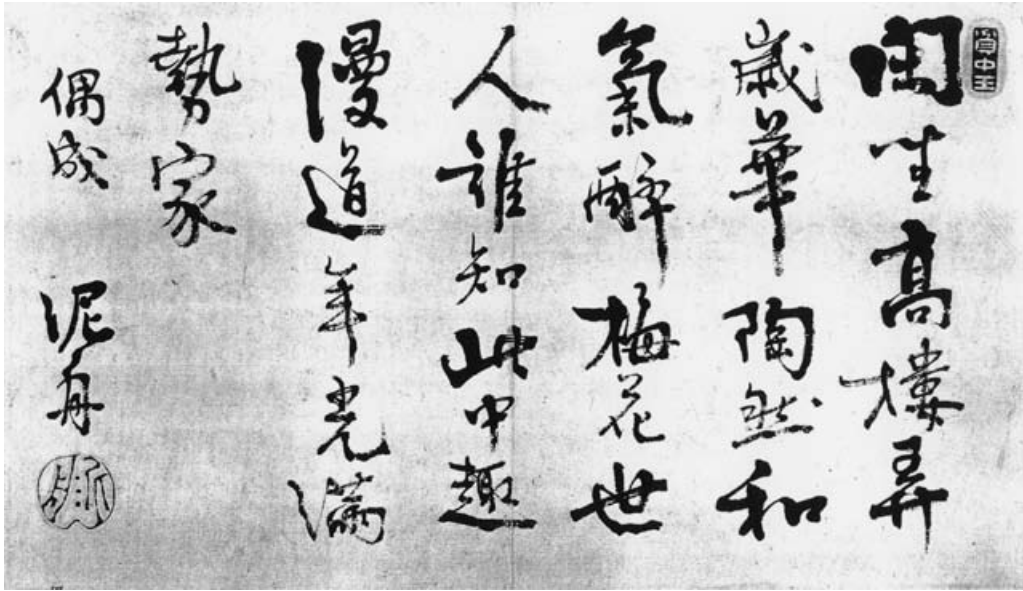 閑坐高樓弄
歳華陶然和
氣醉梅花世
人誰知此中趣
漫道年光滿
勢家
偶成 泥舟